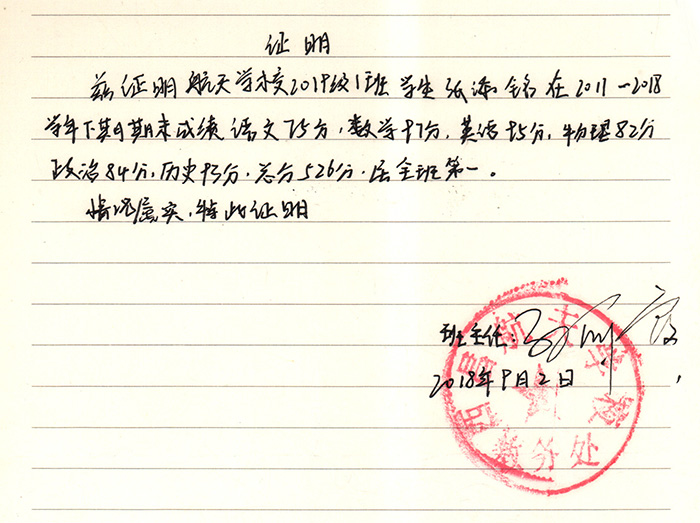 证明
兹证明航天学校2019级1班学生张添铭在2017-2018
学年下期期末成绩语文75分,数学97分,英语95分,物理82分
政治84分,历史93分,总分526分,居全班第一。
情况属实,特此证明
班主任:
2018年9月2日
西昌航天学校
教务处